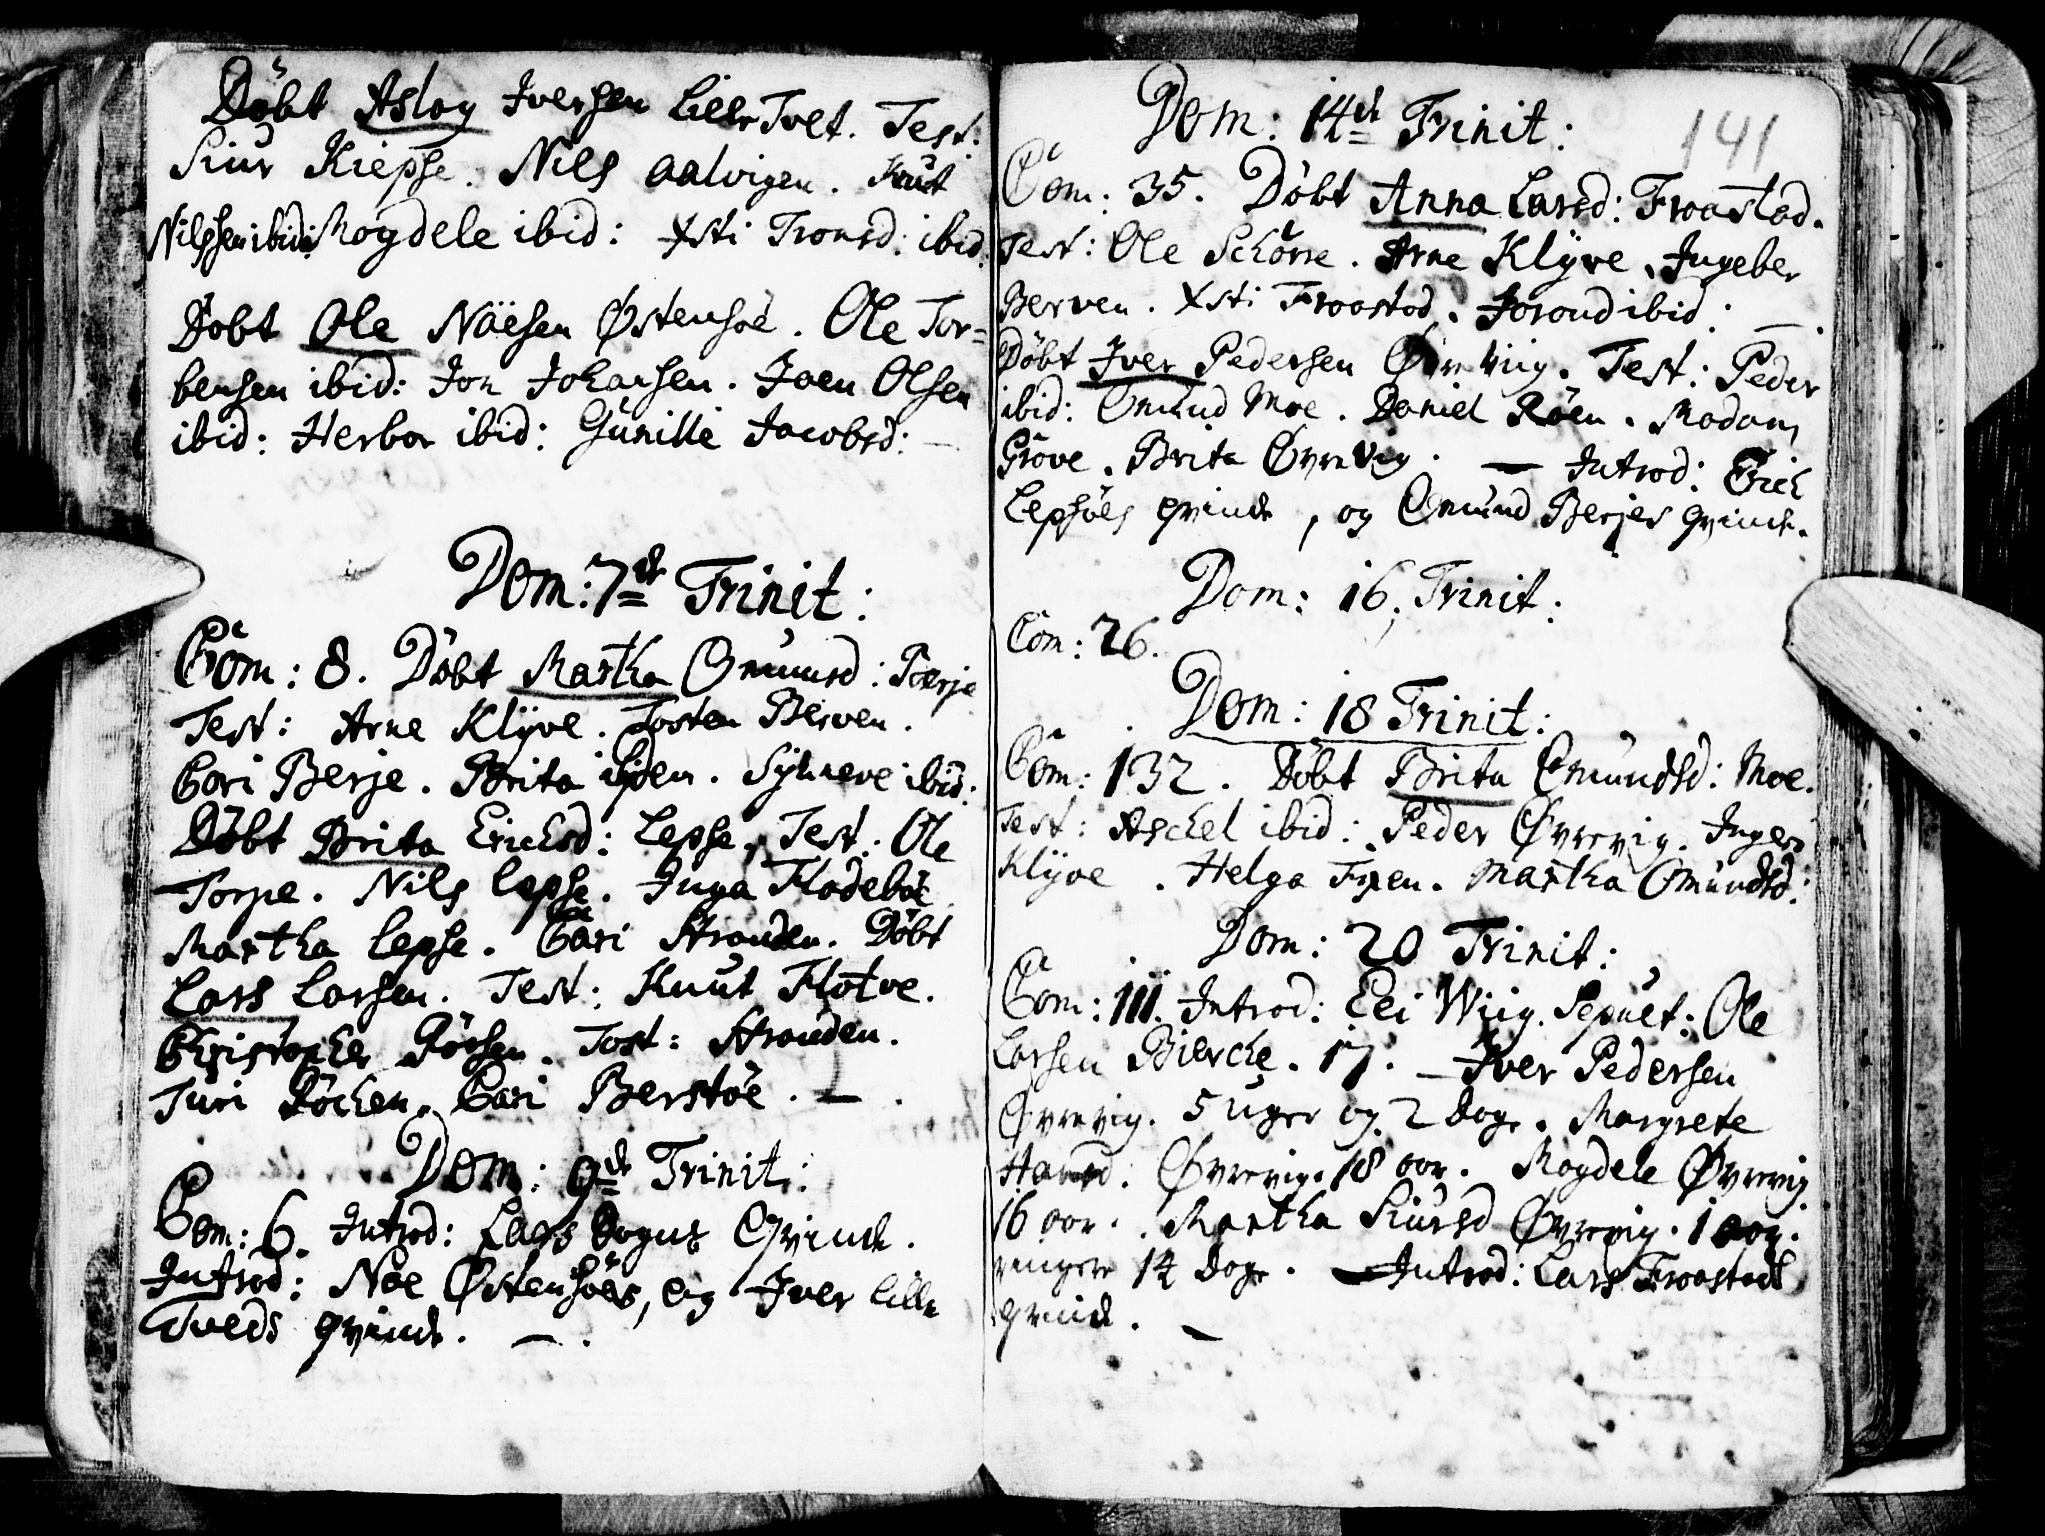 Döbt Aslog Iversen Lille Tvet. Test:
Siur Kiepse. Nils Aalvigen. Knut
Nilssen ibid: Magdele ibid: Xsti Tronsd: ibid:
Döbt Ole Nöesen Østensöe. Ole Tor=
bensen ibid: Jon Johansen. Joen Olsen
ibid: Herbor ibid: Gunille Jacobsd: —
Dom: 7de Trinit:
Com: 8. Döbt Martha Omunsd: Berje
Test: Arne Klyve. Tosten Berven.
Cari Berje. Brita ibidem. Synneve ibid:
Döbt Brita Ericksd: Lepse. Test: Ole
Torpe. Nils Lepse. Inga Flodeböe
Martha Lepse. Cari Stranden. Döbt
Lars Larsen. Test: Knut Flotve.
Christopher Röesen. Tost: Stranden.
Turi Röchen. Cari Berstöe. — .
Dom: 9de Trinit:
Com: 6. Introd: Lars Qvinde.
Introd: Noe Østensöes, og Iver Lille
Tveds qvinde. — .
Dom: 14de Trinit:
141
Com: 35. Döbt Anna Larsd: Froastad.
Test: Ole Schörre. Arne Klyve. Ingeber
Berven. Xsti Froastod. Jorond ibid: — .
Döbt Iver Pedersen Øvreviig. Test: Peder
ibid: Omund Moe. Daniel Röen. Madam
Gröve. Brita Øvrevig. — Introd: Erich
Lepsöes qvinde, og Omund Berjes qvinde.
Dom: 16. Trinit:
Com: 26.
Dom: 18 Trinit:
Com: 132. Döbt Brita Omundsd: Moe.
Test: Aschel ibid: Peder Øvrevig. Ingeri
Klyve. Helga Fixen. Martha Omundsd:
Dom: 20 Trinit:
Com: 111. Introd: Eli Wiig. Sepult: Ole
Larsen Biercke. 17. — Iver Pedersen
Øvrevig. 5 uger og 2 Dage. Margrete
Hansd: Øvrevig. 18 aar. Magdele Øvrevig
16 aar. Martha Siursd Øvrevig. 1 aar.
ringere 14 Dage. — Introd: Lars Froastads
qvinde. —